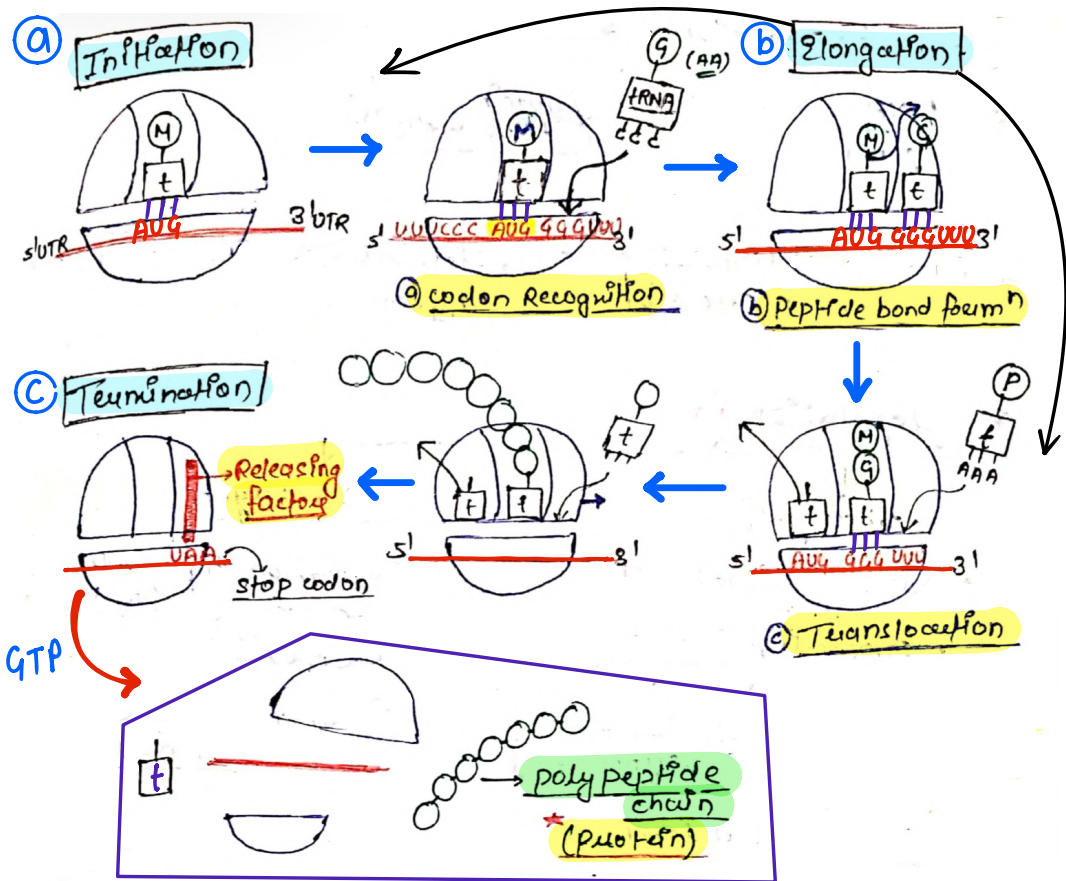 a Initiation
M
t
AUG
5'UTR
3'UTR
G (AA)
tRNA
C C C
M
t
5' UUUCCC AUG GGGUUU 3'
a codon Recognition
b Elongation
M G
t t
5' AUG GGGUUU 3'
b Peptide bond formⁿ
P
t
AAA
M
G
t t
5' AUG GGG UUU 3'
c Translocation
t
t t
5' 3'
c Termination
Releasing
factor
UAA
stop codon
GTP
t
polypeptide
chain
*(protein)